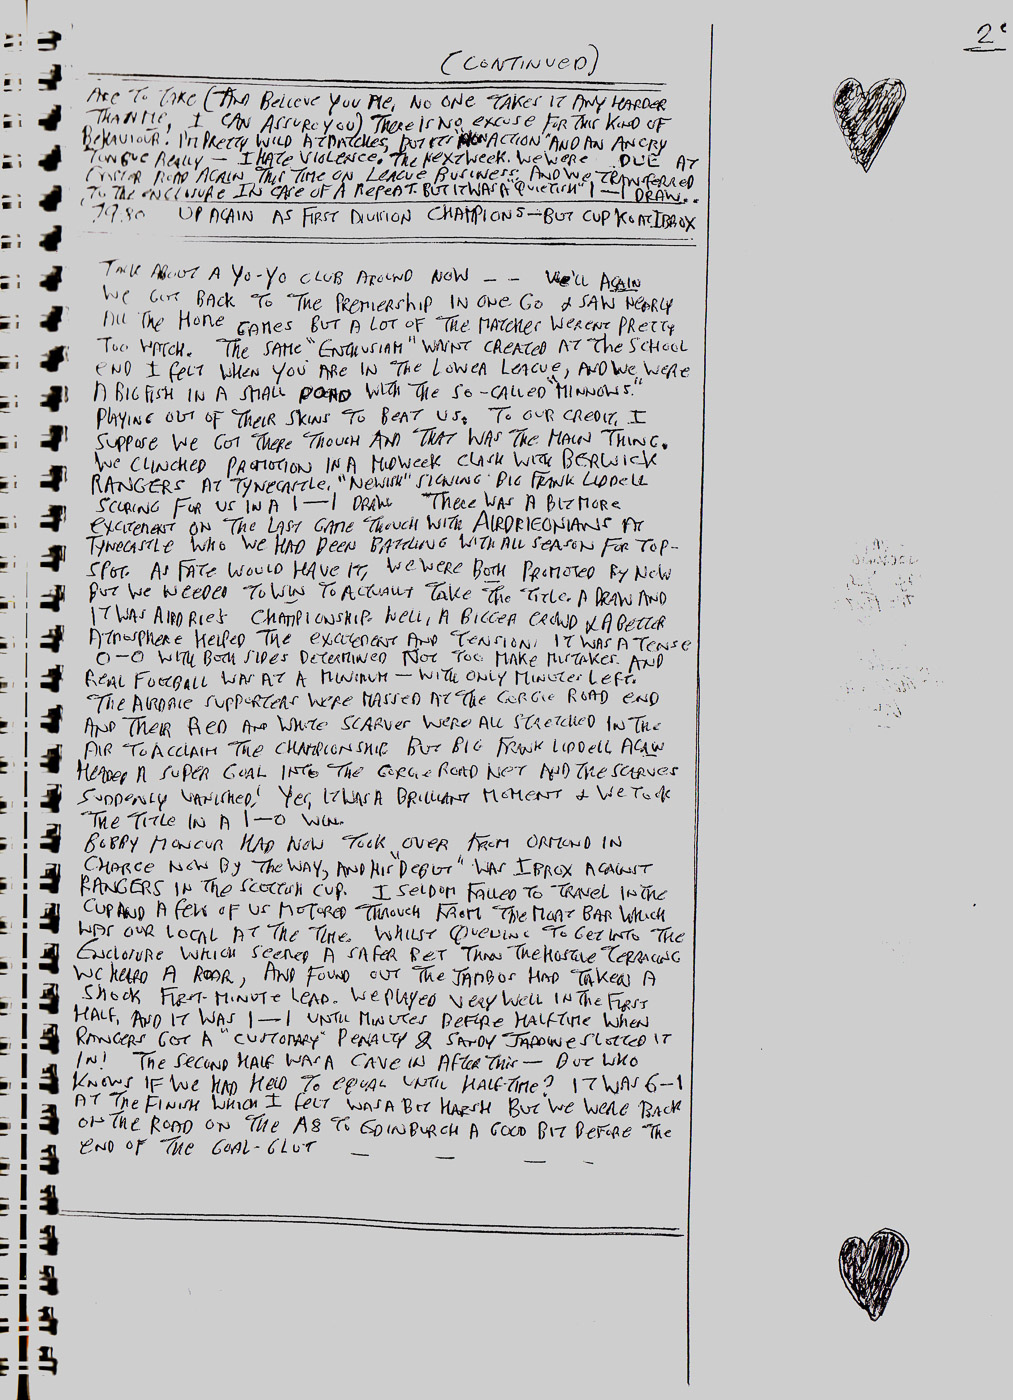 2
(CONTINUED)
ARE TO TAKE (AND BELIEVE YOU ME, NO ONE TAKES IT ANY HARDER
THAN ME, I CAN ASSURE YOU) THERE IS NO EXCUSE FOR THIS KIND OF
BEHAVIOUR. I'M PRETTY WILD AT MATCHES, BUT IT'S "NON ACTION" AND AN ANGRY
TONGUE REALLY — I HATE VIOLENCE. THE NEXT WEEK. WE WERE DUE AT
EASTER ROAD AGAIN THIS TIME ON LEAGUE BUSINESS, AND WE TRANSFERRED
TO THE ENCLOSURE IN CASE OF A REPEAT. BUT IT WAS A "QUIETISH" 1—1 DRAW..
79.80 UP AGAIN AS FIRST DIVISION CHAMPIONS—BUT CUP KO AT IBROX
TALK ABOUT A YO-YO CLUB AROUND NOW — — WE'LL AGAIN
WE GOT BACK TO THE PREMIERSHIP IN ONE GO & SAW NEARLY
ALL THE HOME GAMES BUT A LOT OF THE MATCHES WERENT PRETTY
TOO WATCH. THE SAME "ENTHUSIAM" WAINT CREATED AT THE SCHOOL
END I FELT WHEN YOU ARE IN THE LOWER LEAGUE, AND WE WERE
A BIG FISH IN A SMALL POND WITH THE SO-CALLED "MINNOWS."
PLAYING OUT OF THEIR SKINS TO BEAT US. TO OUR CREDIT, I
SUPPOSE WE GOT THERE THOUGH AND THAT WAS THE MAIN THING.
WE CLINCHED PROMOTION IN A MIDWEEK CLASH WITH BERWICK
RANGERS AT TYNECASTLE. "NEWISH" SIGNING BIG FRANK LIDDELL
SCORING FOR US IN A 1—1 DRAW THERE WAS A BIT MORE
EXCITEMENT ON THE LAST GAME THOUGH WITH AIRDRIEONIANS AT
TYNECASTLE WHO WE HAD BEEN BATTLING WITH ALL SEASON FOR TOP-
SPOT. AS FATE WOULD HAVE IT, WE WERE BOTH PROMOTED BY NOW
BUT WE NEEDED TO WIN TO ACTUALLY TAKE THE TITLE. A DRAW AND
IT WAS AIRDRIE'S CHAMPIONSHIP. WELL, A BIGGER CROWD & A BETTER
ATMOSPHERE HELPED THE EXCITEMENT AND TENSION. IT WAS A TENSE
0—0 WITH BOTH SIDES DETERMINED NOT TOO MAKE MISTAKES. AND
REAL FOOTBALL WAS AT A MINIMUM — WITH ONLY MINUTES LEFT.
THE AIRDRIE SUPPORTERS WERE MASSED AT THE GORGIE ROAD END
AND THEIR RED AND WHITE SCARVES WERE ALL STRETCHED IN THE
AIR TO ACCLAIM THE CHAMPIONSHIP BUT BIG FRANK LIDDELL AGAIN
HEADED A SUPER GOAL INTO THE GORGIE ROAD NET AND THE SCARVES
SUDDENLY VANISHED! YES, IT WAS A BRILLIANT MOMENT & WE TOOK
THE TITLE IN A 1—0 WIN.
BOBBY MONCUR HAD NOW TOOK OVER FROM ORMOND IN
CHARGE NOW BY THE WAY, AND HIS "DEBUT" WAS IBROX AGAINST
RANGERS IN THE SCOTTISH CUP. I SELDOM FAILED TO TRAVEL IN THE
CUP AND A FEW OF US MOTORED THROUGH FROM THE MOAT BAR WHICH
WAS OUR LOCAL AT THE TIME. WHILST QUEUING TO GET INTO THE
ENCLOSURE WHICH SEEMED A SAFER BET THAN THE HOSTILE TERRACING
WE HEARD A ROAR, AND FOUND OUT THE JAMBOS HAD TAKEN A
SHOCK FIRST-MINUTE LEAD. WE PLAYED VERY WELL IN THE FIRST
HALF, AND IT WAS 1—1 UNTIL MINUTES BEFORE HALFTIME WHEN
RANGERS GOT A "CUSTOMARY" PENALTY & SANDY JARDINE SLOTTED IT
IN! THE SECOND HALF WAS A CAVE IN AFTER THIS — BUT WHO
KNOWS IF WE HAD HELD TO EQUAL UNTIL HALF-TIME? IT WAS 6—1
AT THE FINISH WHICH I FELT WAS A BIT HARSH BUT WE WERE BACK
ON THE ROAD ON THE A8 TO EDINBURGH A GOOD BIT BEFORE THE
END OF THE GOAL-GLUT — — — –